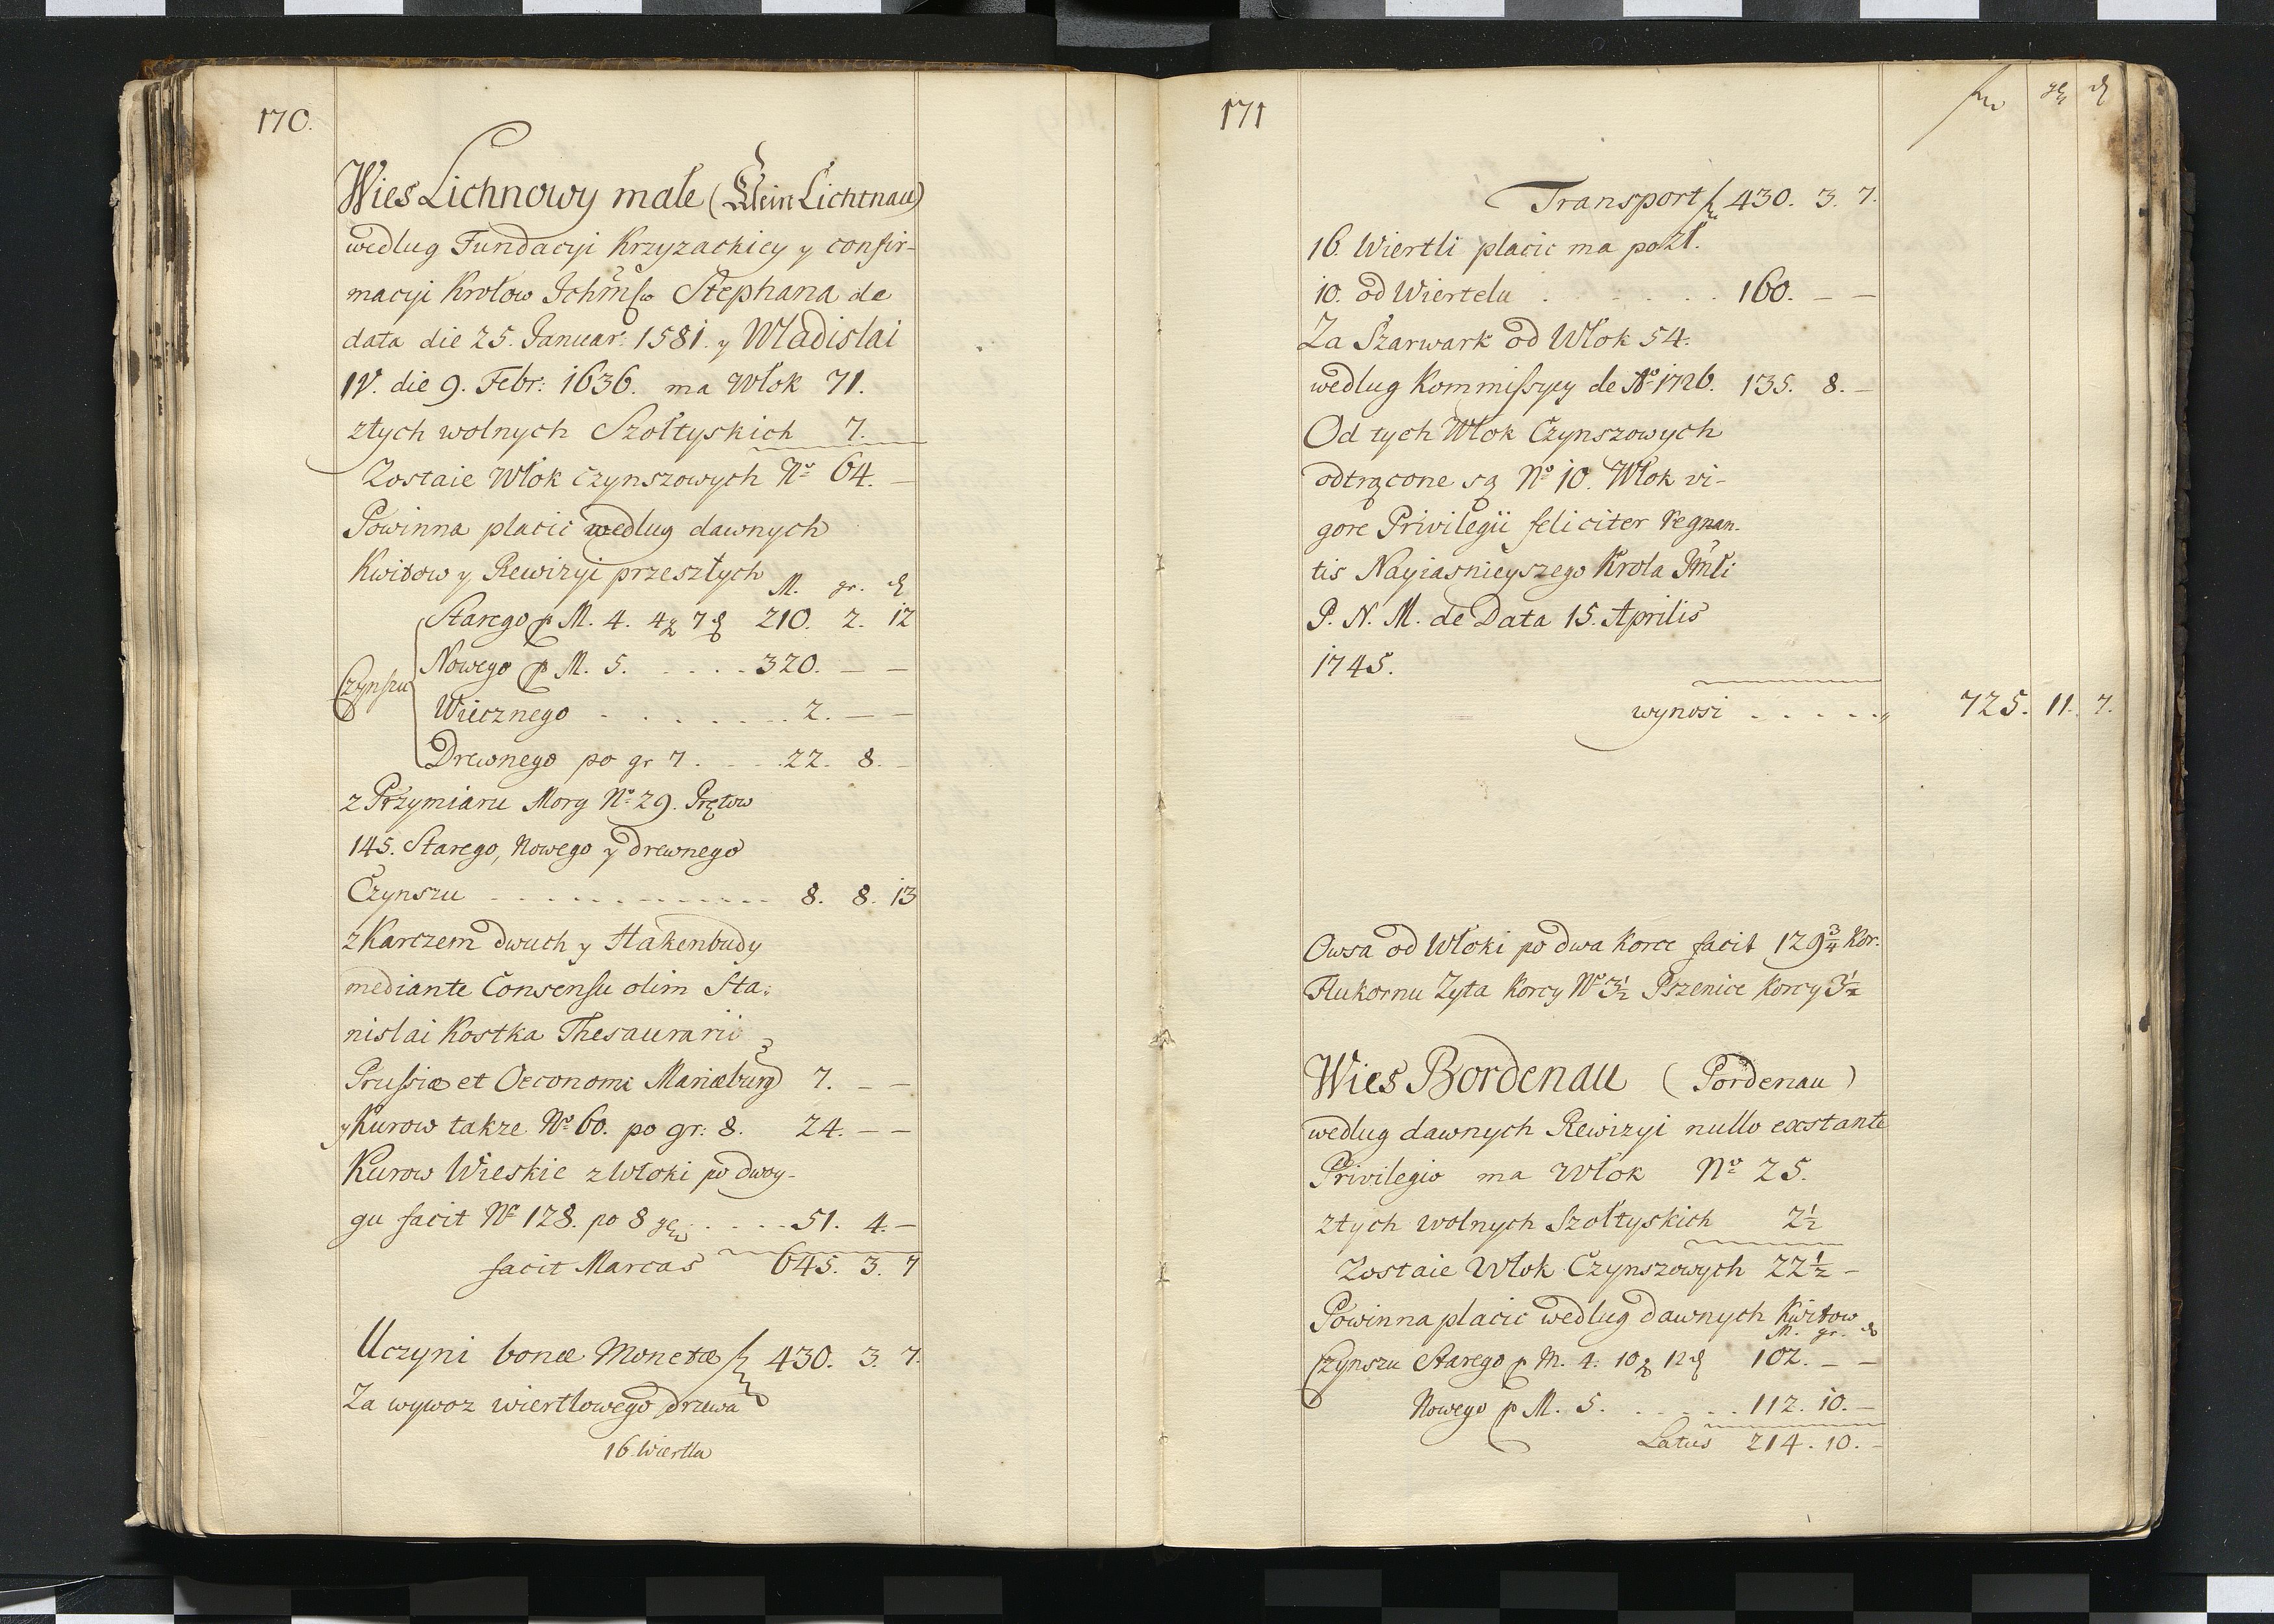 170.
Wies Lichnowy małe (Klein Lichtnau)
wedlug Fundacyi Krzyzackiey y confir-
macyi Krolow Stephana de
data die 25. Januar: 1581. y Wladislai
IV. die 9. Febr: 1636. ma Włok 71.
z tych wolnych Szołtyskich 7.
Zostaie Włok czynszowych No 64. –
Powinna placic wedlug dawnych
Kwitow y Rewizyi przeszłych
M. gr. ₰
Czynszu
Starego p M. 4. 4 7 ₰ 210. 2. 12
Nowego p M. 5. . . . . 320. – –
Wiecznego . . . . . . . 2. – –
Drewnego po gr 7. . . . 22. 8. –
z Przymiaru Morg No 29. Prętow
145. Starego, Nowego y drewnego
Czynszu . . . . . . . . . . 8. 8. 13
z Karczem dwuch y Hakenbudy
mediante Consensu olim Sta:
nislai Kostka Thesaurarii
Prussiæ et Oeconomi Mariæburg 7. – –
y Kurow takze No 60. po gr: 8. 24. – –
Kurow Wieskie z Włoki po dwoy-
gu facit No 128. po 8 gr . . . . 51. 4. –
facit Marcas 645. 3. 7
Uczyni bonæ Monetæ 430. 3. 7.
Za wywoz wiertlowego drzewa
16. Wiertla
171
fl gr ₰
Transport 430. 3. 7.
16. Wiertli placic ma po zł.
10. od Wiertelu . . . . . . 160. – –
Za Szarwark od Włok 54.
wedlug Kommissyey de Ao 1726. 135. 8. –
Od tych Włok Czynszowych
odtrącone są No 10. Włok vi-
gore Privilegii feliciter regnan-
tis Nayiasnieyszego Krola Jmłi
P. N. M. de Data 15. Aprilis
1745.
wynosi . . . . . 725. 11. 7.
Owsa od Włoki po dwa korce facit 129 3/4 Kor.
Hukornu Zyta Korcy No 3 1/2 Pszenice Korcy 3 1/2
Wies Bordenau (Pordenau)
wedlug dawnych Rewizyi nullo exstante
Privilegio ma Włok No 25.
z tych wolnych Szołtyskich 2 1/2
Zostaie Włok Czynszowych 22 1/2 –
Powinna placic wedlug dawnych Kwitow
M. gr. ₰
Czynszu Starego p M. 4. 10 12 ₰ 102. – –
Nowego p M. 5. . . . . . 112. 10. –
Latus 214. 10. –